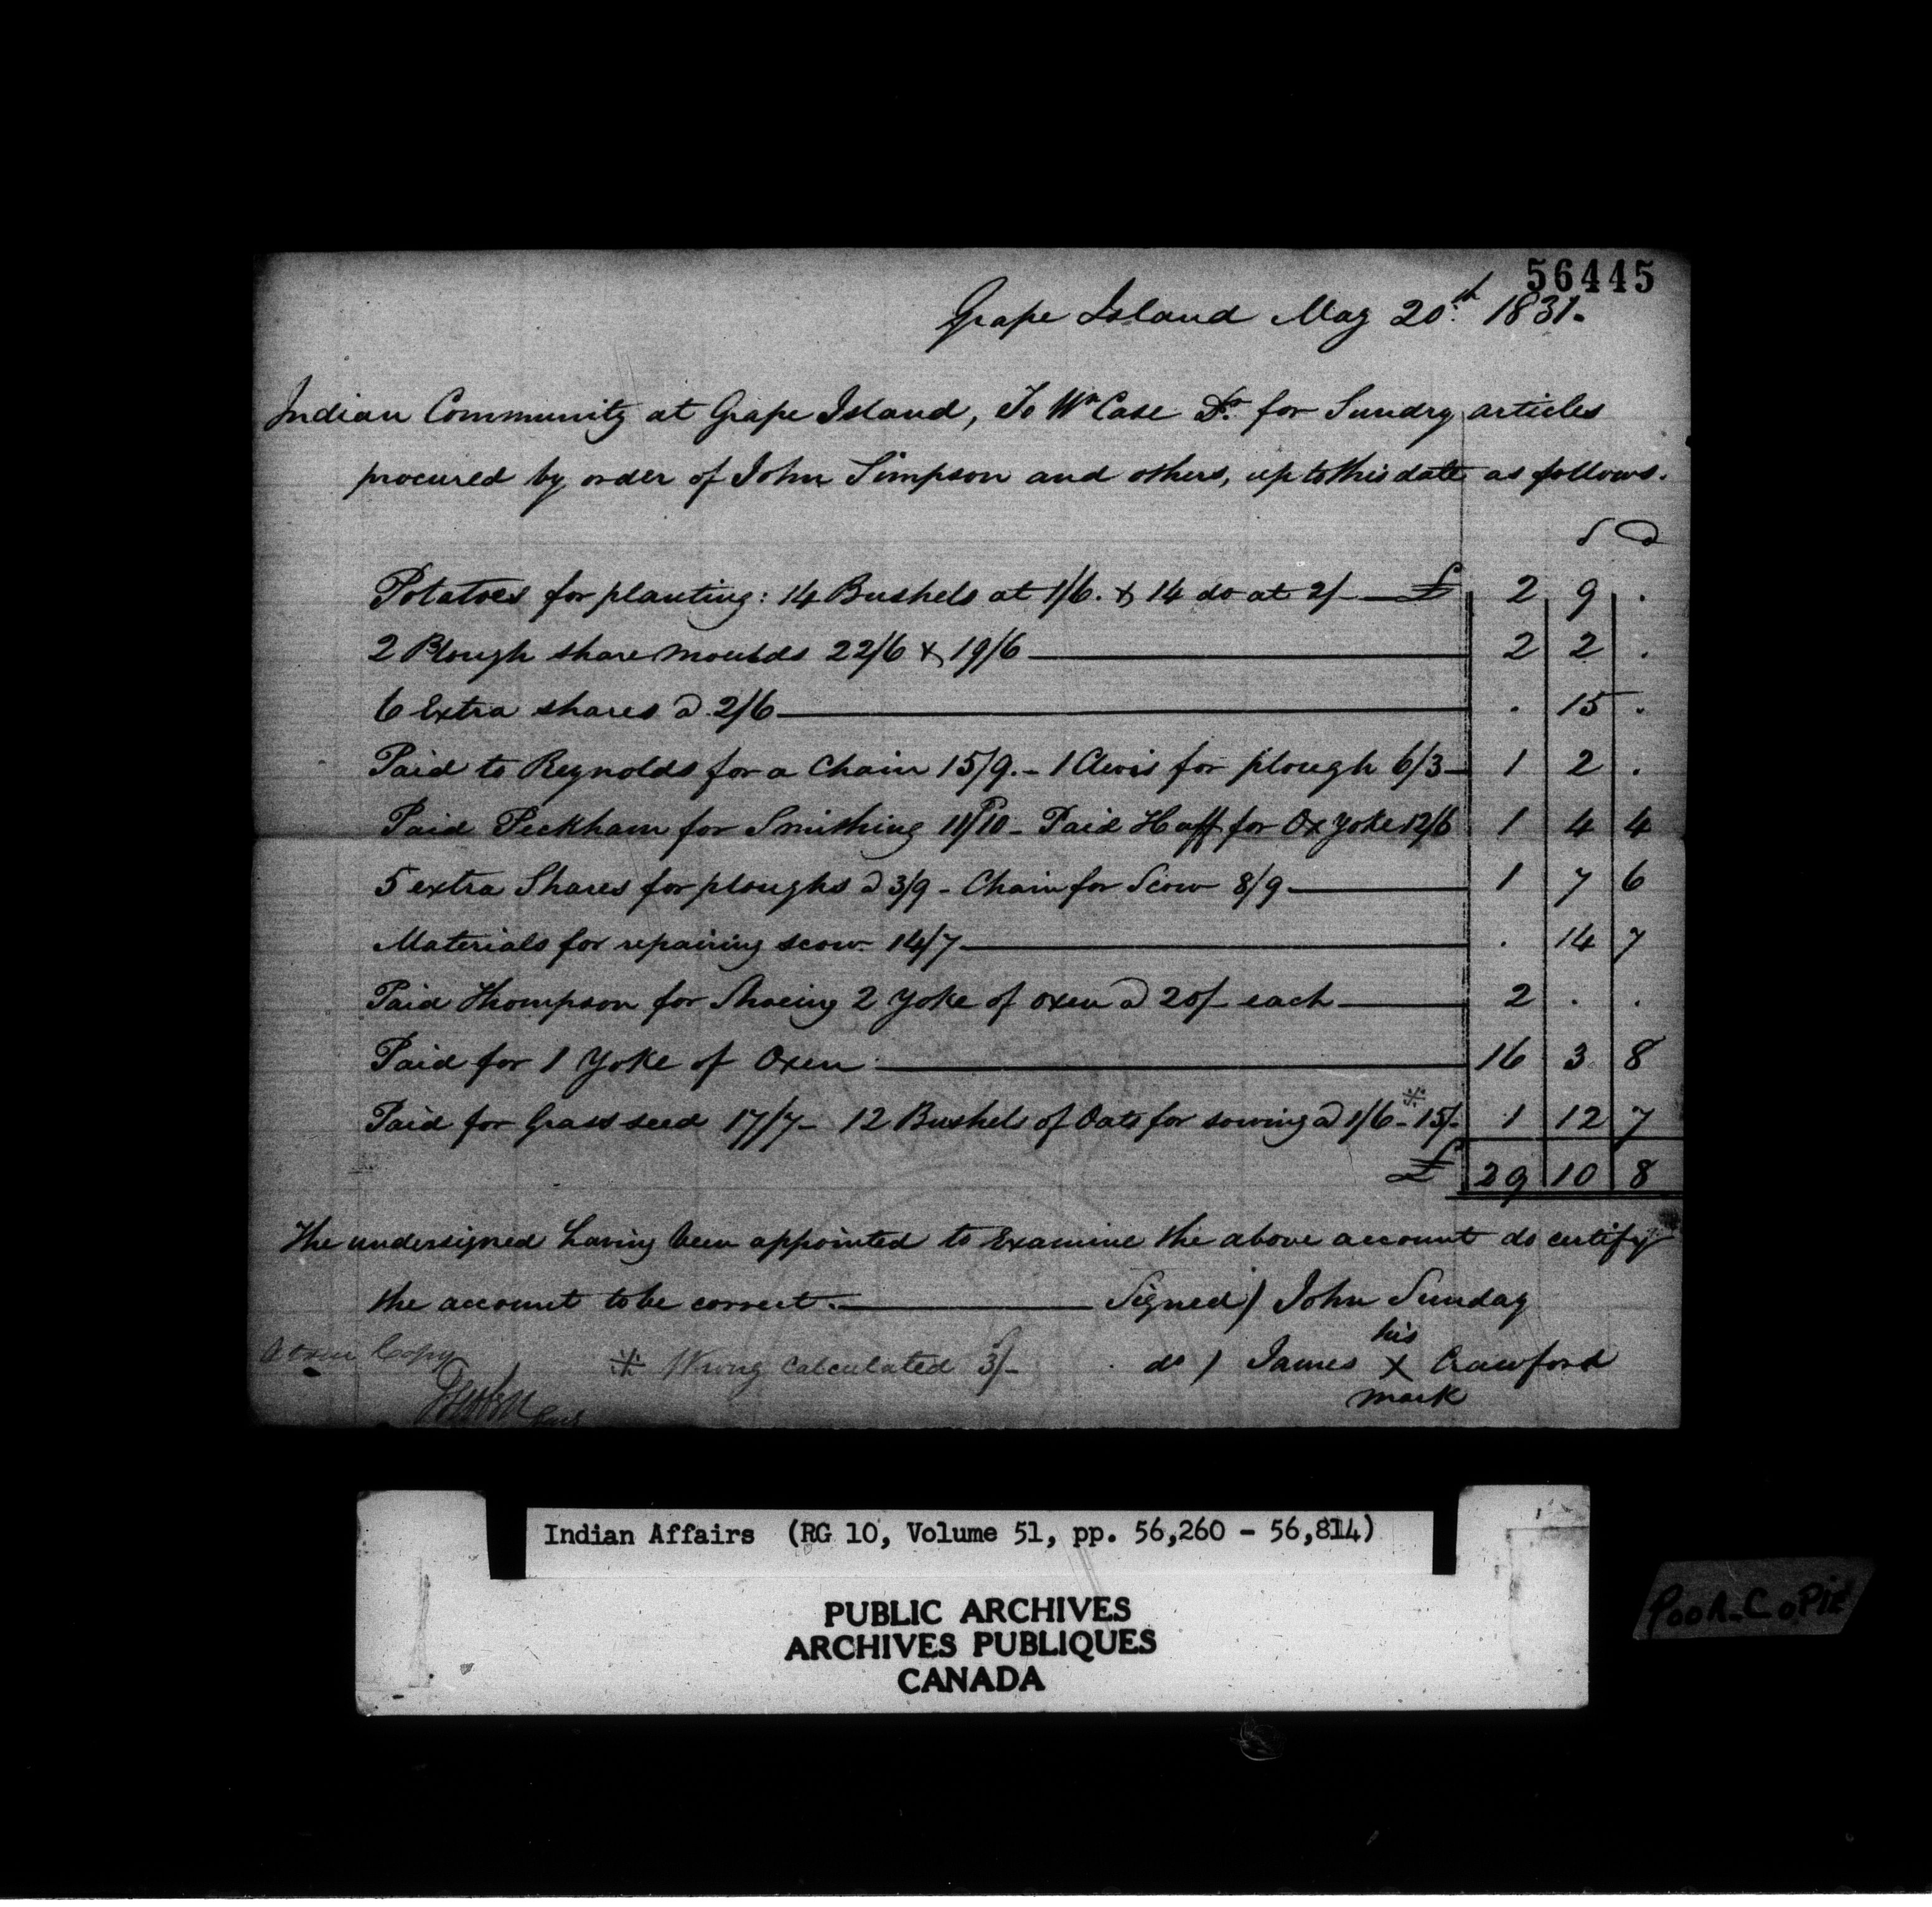 56445
Grape Island May 20th 1831.
Indian Community at Grape Island, To Wm Case Dr. for Sundry articles
procured by order of John Simpson and others, up to this date as follows.
S D
Potatoes for planting: 14 Bushels at 1/6. & 14 do at 2/- £ 2 9 .
2 Plough share moulds 22/6 & 19/6 2 2 .
6 Extra shares @ 2/6 . 15 .
Paid to Reynolds for a Chain 15/9. - 1 Clevis for plough 6/3 1 2 .
Paid Peckham for Smithing 11/10 - Paid Haff for Ox Yoke 12/6 1 4 4
5 extra Shares for ploughs @ 3/9 - Chain for Scow 8/9 1 7 6
Materials for repairing scow 14/7 . 14 7
Paid Thompson for Shoeing 2 Yoke of oxen @ 20/- each 2 . .
Paid for 1 Yoke of Oxen 16 3 8
Paid for Grass seed 17/7 - 12 Bushels of Oats for sowing @ 1/6 - * 15/- 1 12 7
£ 29 10 8
The undersigned having been appointed to Examine the above account do certify
the account to be correct. Signed) John Sunday
his
* Wrong Calculated 3/- do) James X Crawford
mark
Copy
Indian Affairs (RG 10, Volume 51, pp. 56,260 - 56,814)
PUBLIC ARCHIVES
ARCHIVES PUBLIQUES
CANADA
POOR COPIE